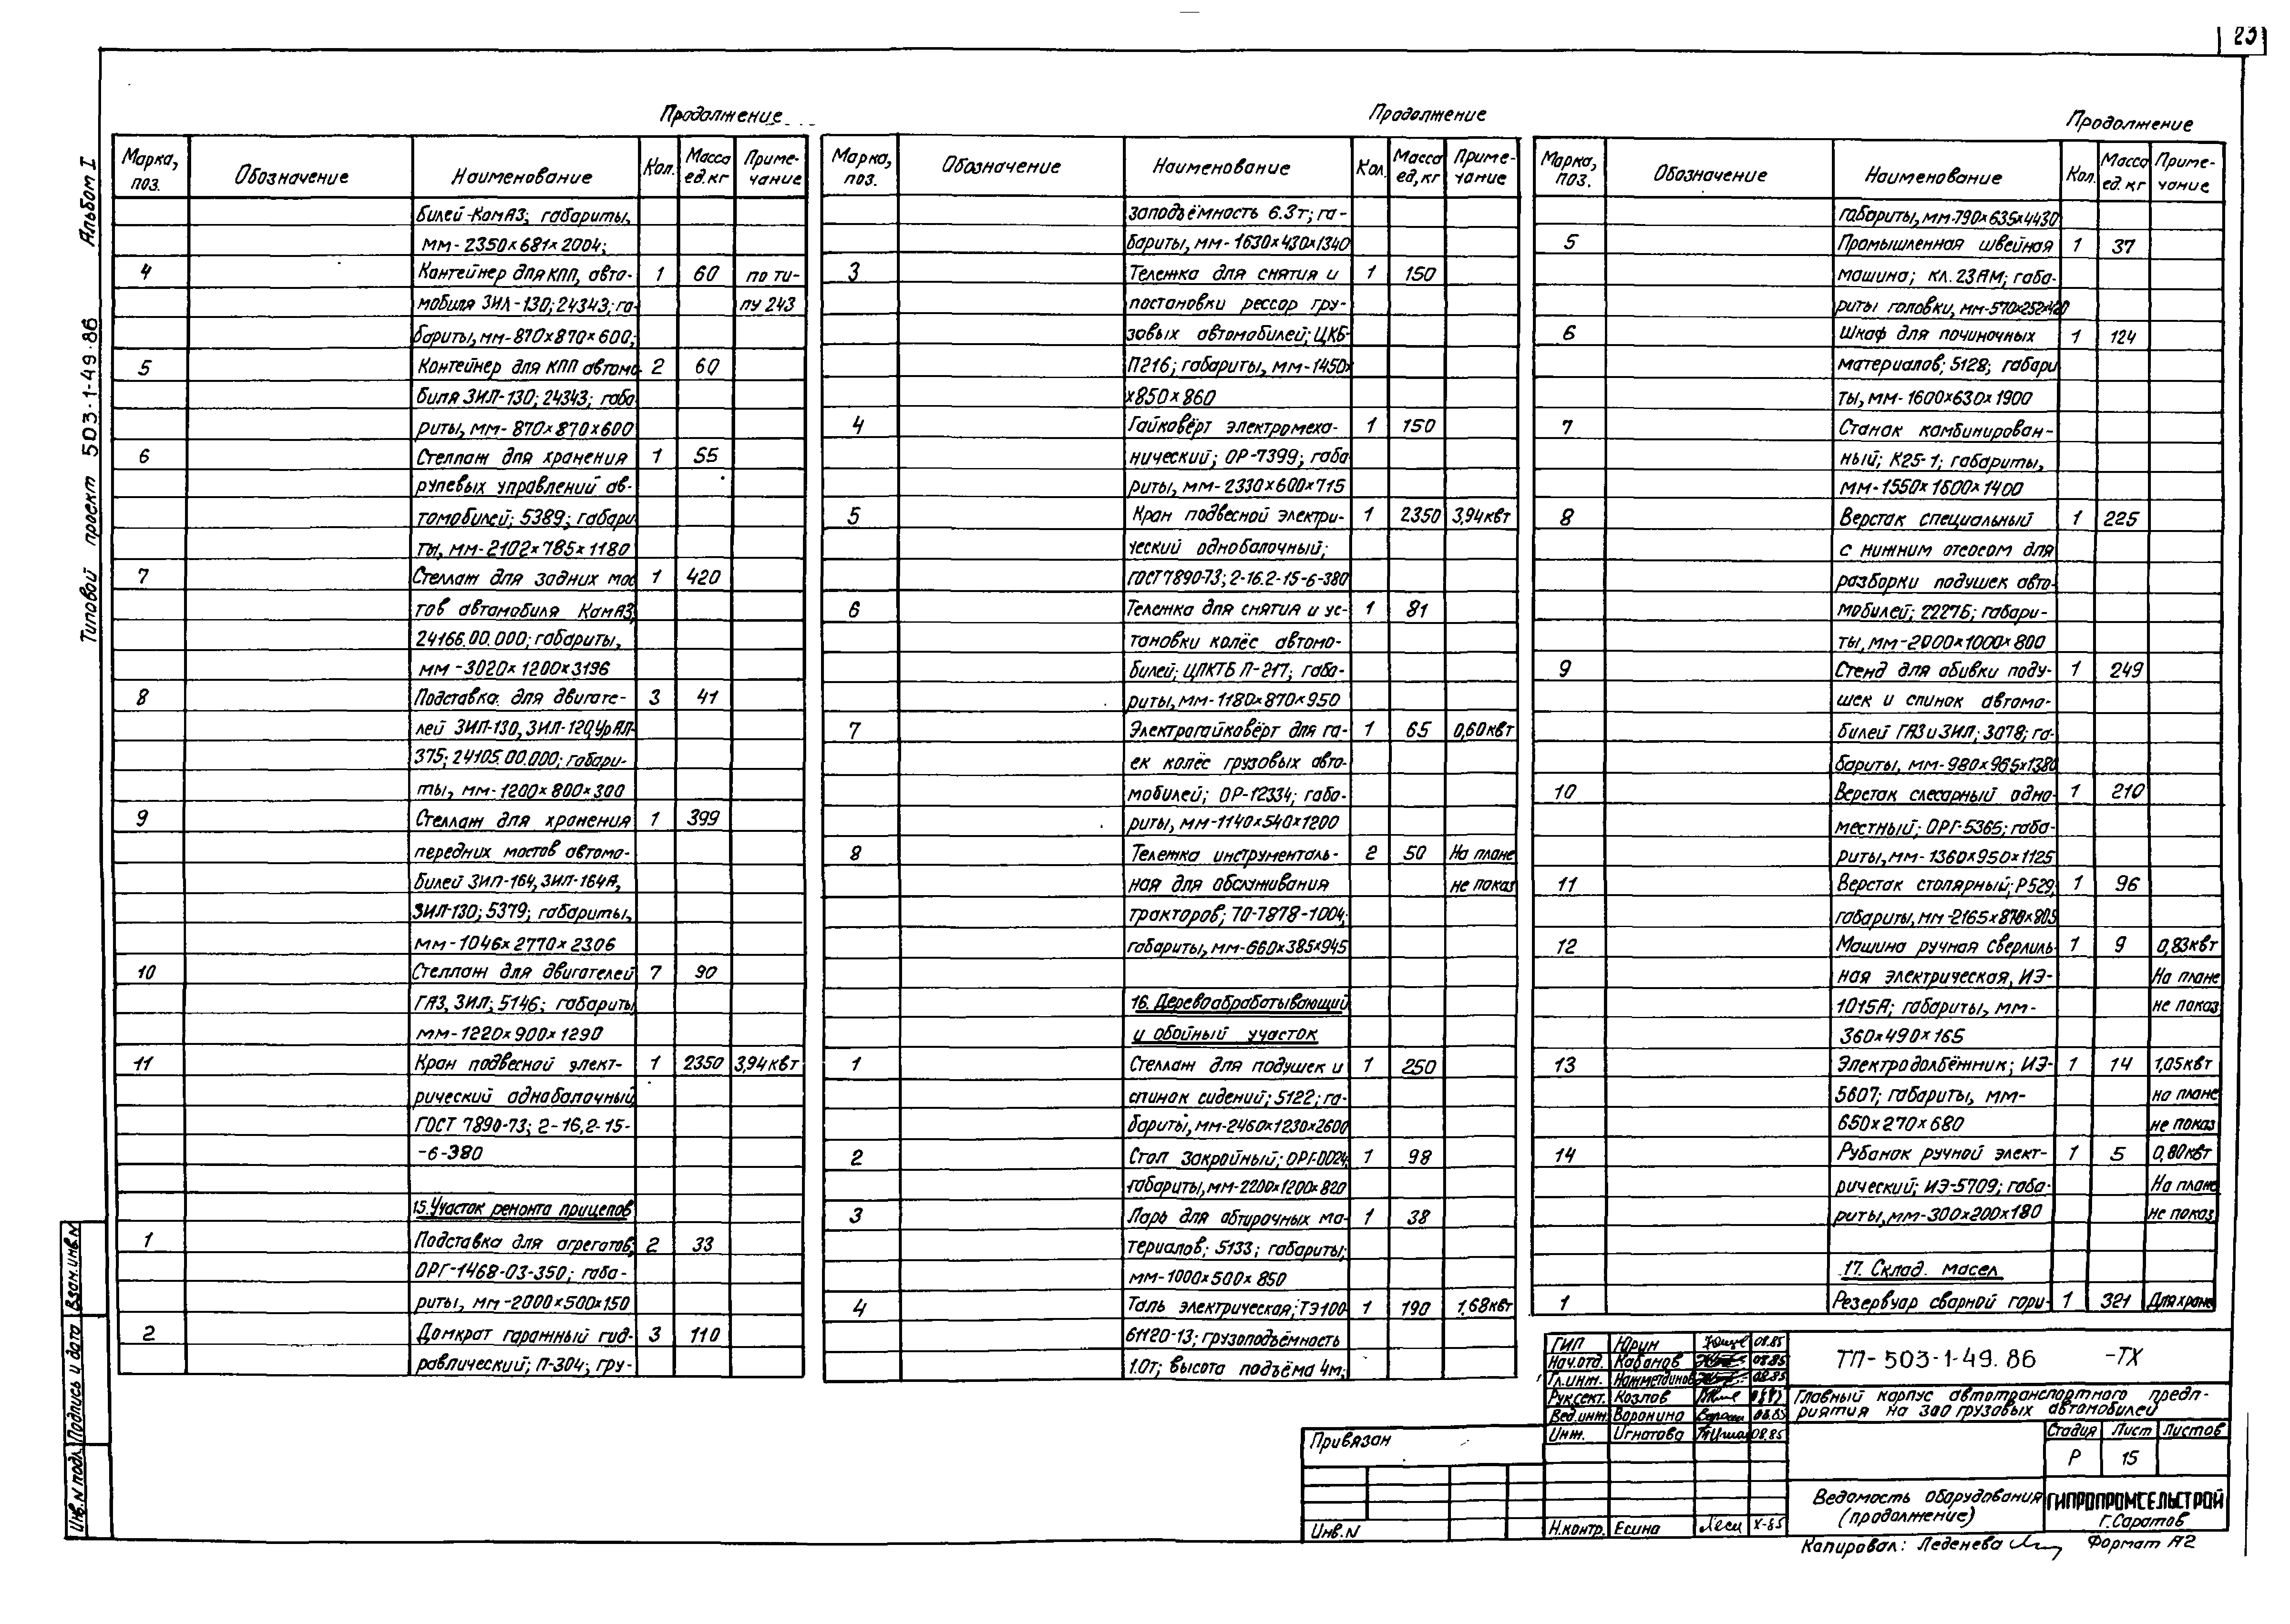 23
Типовой проект 503-1-49.86 Альбом I
Продолжение
Марка, поз. Обозначение Наименование Кол. Масса ед.кг Приме-чание
билей-КамАЗ; габариты,
мм-2350х681х2004;
4 Контейнер для КПП, авто- 1 60 по ти-
мобиля ЗИЛ-130; 24343; га- пу 243
бариты, мм-870х870х600;
5 Контейнер для КПП автомо 2 60
биля ЗИЛ-130; 24343; габа
риты, мм-870х870х600
6 Стеллаж для хранения 1 55
рулевых управлений ав-
томобилей; 5389; габари
ты, мм-2102х785х1180
7 Стеллаж для задних мос 1 420
тов автомобиля КамАЗ;
24166.00.000; габариты,
мм-3020х1200х3196
8 Подставка для двигате- 3 41
лей ЗИЛ-130, ЗИЛ-120, УрАЛ-
375; 24105.00.000; габари-
ты, мм-1200х800х300
9 Стеллаж для хранения 1 399
передних мостов автомо-
билей ЗИЛ-164, ЗИЛ-164А,
ЗИЛ-130; 5379; габариты,
мм-1046х2770х2306
10 Стеллаж для двигателей 7 90
ГАЗ, ЗИЛ; 5146; габариты
мм-1220х900х1290
11 Кран подвесной элект- 1 2350 3,94квт
рический однобалочный
ГОСТ 7890-73; 2-16,2-15-
-6-380
15. Участок ремонта прицепов
1 Подставка для агрегатов; 2 33
ОРГ-1468-03-350; габа-
риты, мм-2000х500х150
2 Домкрат гаражный гид- 3 110
равлический; П-304; гру-
Продолжение
Марка, поз. Обозначение Наименование Кол. Масса ед,кг Приме-чание
заподъёмность 6.3т; га-
бариты, мм-1630х430х1340
3 Тележка для снятия и 1 150
постановки рессор гру-
зовых автомобилей; ЦКБ-
П216; габариты, мм-1450х
х850х860
4 Гайковёрт электромеха- 1 150
нический; ОР-7399; габа
риты, мм-2330х600х715
5 Кран подвесной электри- 1 2350 3,94квт
ческий однобалочный;
ГОСТ 7890-73; 2-16.2-15-6-380
6 Тележка для снятия и ус- 1 81
тановки колёс автомо-
билей; ЦПКТБ П-217; габа-
риты, мм-1180х870х950
7 Электрогайковёрт для га- 1 65 0,60квт
ек колёс грузовых авто-
мобилей; ОР-12334; габа-
риты, мм-1140х540х1200
8 Тележка инструменталь- 2 50 На плане
ная для обслуживания не показ
тракторов; 70-7878-1004;
габариты, мм-660х385х945
16. Деревообрабатывающий
и обойный участок
1 Стеллаж для подушек и 1 250
спинок сидений; 5122; га-
бариты, мм-2460х1230х2600
2 Стол закройный; ОРГ-0024, 1 98
габариты, мм-2200х1200х820
3 Ларь для обтирочных ма- 1 38
териалов; 5133; габариты;
мм-1000х500х850
4 Таль электрическая; ТЭ100- 1 190 1,68квт
61120-13; грузоподъёмность
1.0т; высота подъёма 4м;
Продолжение
Марка, поз. Обозначение Наименование Кол. Масса ед.кг Приме-чание
габариты, мм-790х635х4430
5 Промышленная швейная 1 37
машина; кл. 23АМ; габа-
риты головки, мм-570х252х420
6 Шкаф для починочных 1 124
материалов; 5128; габари
ты, мм-1600х630х1900
7 Станок комбинирован-
ный; К25-1; габариты,
мм-1550х1600х1400
8 Верстак специальный 1 225
с нижним отсосом для
разборки подушек авто-
мобилей; 2227Б; габари-
ты, мм-2000х1000х800
9 Стенд для обивки поду- 1 249
шек и спинок автомо-
билей ГАЗ и ЗИЛ; 3078; га-
бариты, мм-980х965х1380
10 Верстак слесарный одно- 1 210
местный; ОРГ-5365; габа-
риты, мм-1360х950х1125
11 Верстак столярный; Р529, 1 96
габариты, мм-2165х870х805
12 Машина ручная сверлиль- 1 9 0,83квт
ная электрическая, ИЭ- На плане
1015А; габариты, мм- не показ
360х490х165
13 Электродолбёжник; ИЭ- 1 14 1,05квт
5607; габариты, мм- на плане
650х270х680 не показ
14 Рубанок ручной элект- 1 5 0,80квт
рический; ИЭ-5709; габа- На плане
риты, мм-300х200х180 не показ
17. Склад масел
1 Резервуар сварной гори- 1 321 Для хране
ГИП Юрин 08.85
Нач.отд. Кабанов 08.85
Гл.инж. Нажметдинов 08.85
Рук.сект. Козлов
Вед.инж. Воронина 08.85
Инж. Игнатова 08.85
Н.контр. Есина X-85
ТП-503-1-49.86 -ТХ
Главный корпус автотранспортного предп-
риятия на 300 грузовых автомобилей
Стадия Лист Листов
Р 15
Ведомость оборудования
(продолжение)
ГИПРОПРОМСЕЛЬСТРОЙ
г.Саратов
Привязан
Инв.N
Копировал: Леденева Формат А2
Инв.N подл. Подпись и дата Взам.инв.N